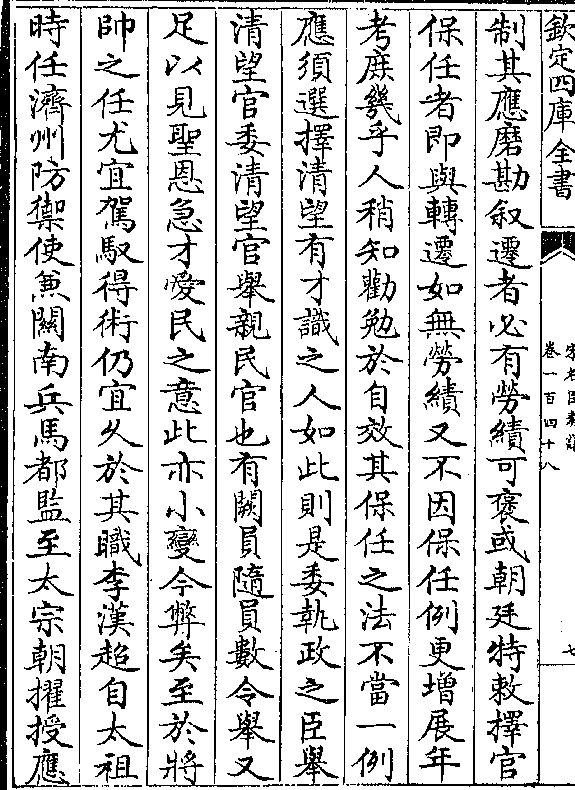 欽定四庫全書
宋名臣奏議
卷一百四十八
七
制其應磨勘叙遷者必有勞績可褒或朝廷特敕擇官
保任者即與轉遷如無勞績又不因保任例更增展年
考庶幾乎人稍知勸勉於自效其保任之法不當一例
應須選擇清望有才識之人如此則是委執政之臣舉
清望官委清望官舉親民官也有闕員隨員數令舉又
足以見聖恩急才愛民之意此亦小變今弊矣至於將
帥之任尤宜駕馭得術仍宜久於其職李漢超自太祖
時任濟州防禦使兼關南兵馬都監至太宗朝擢授應